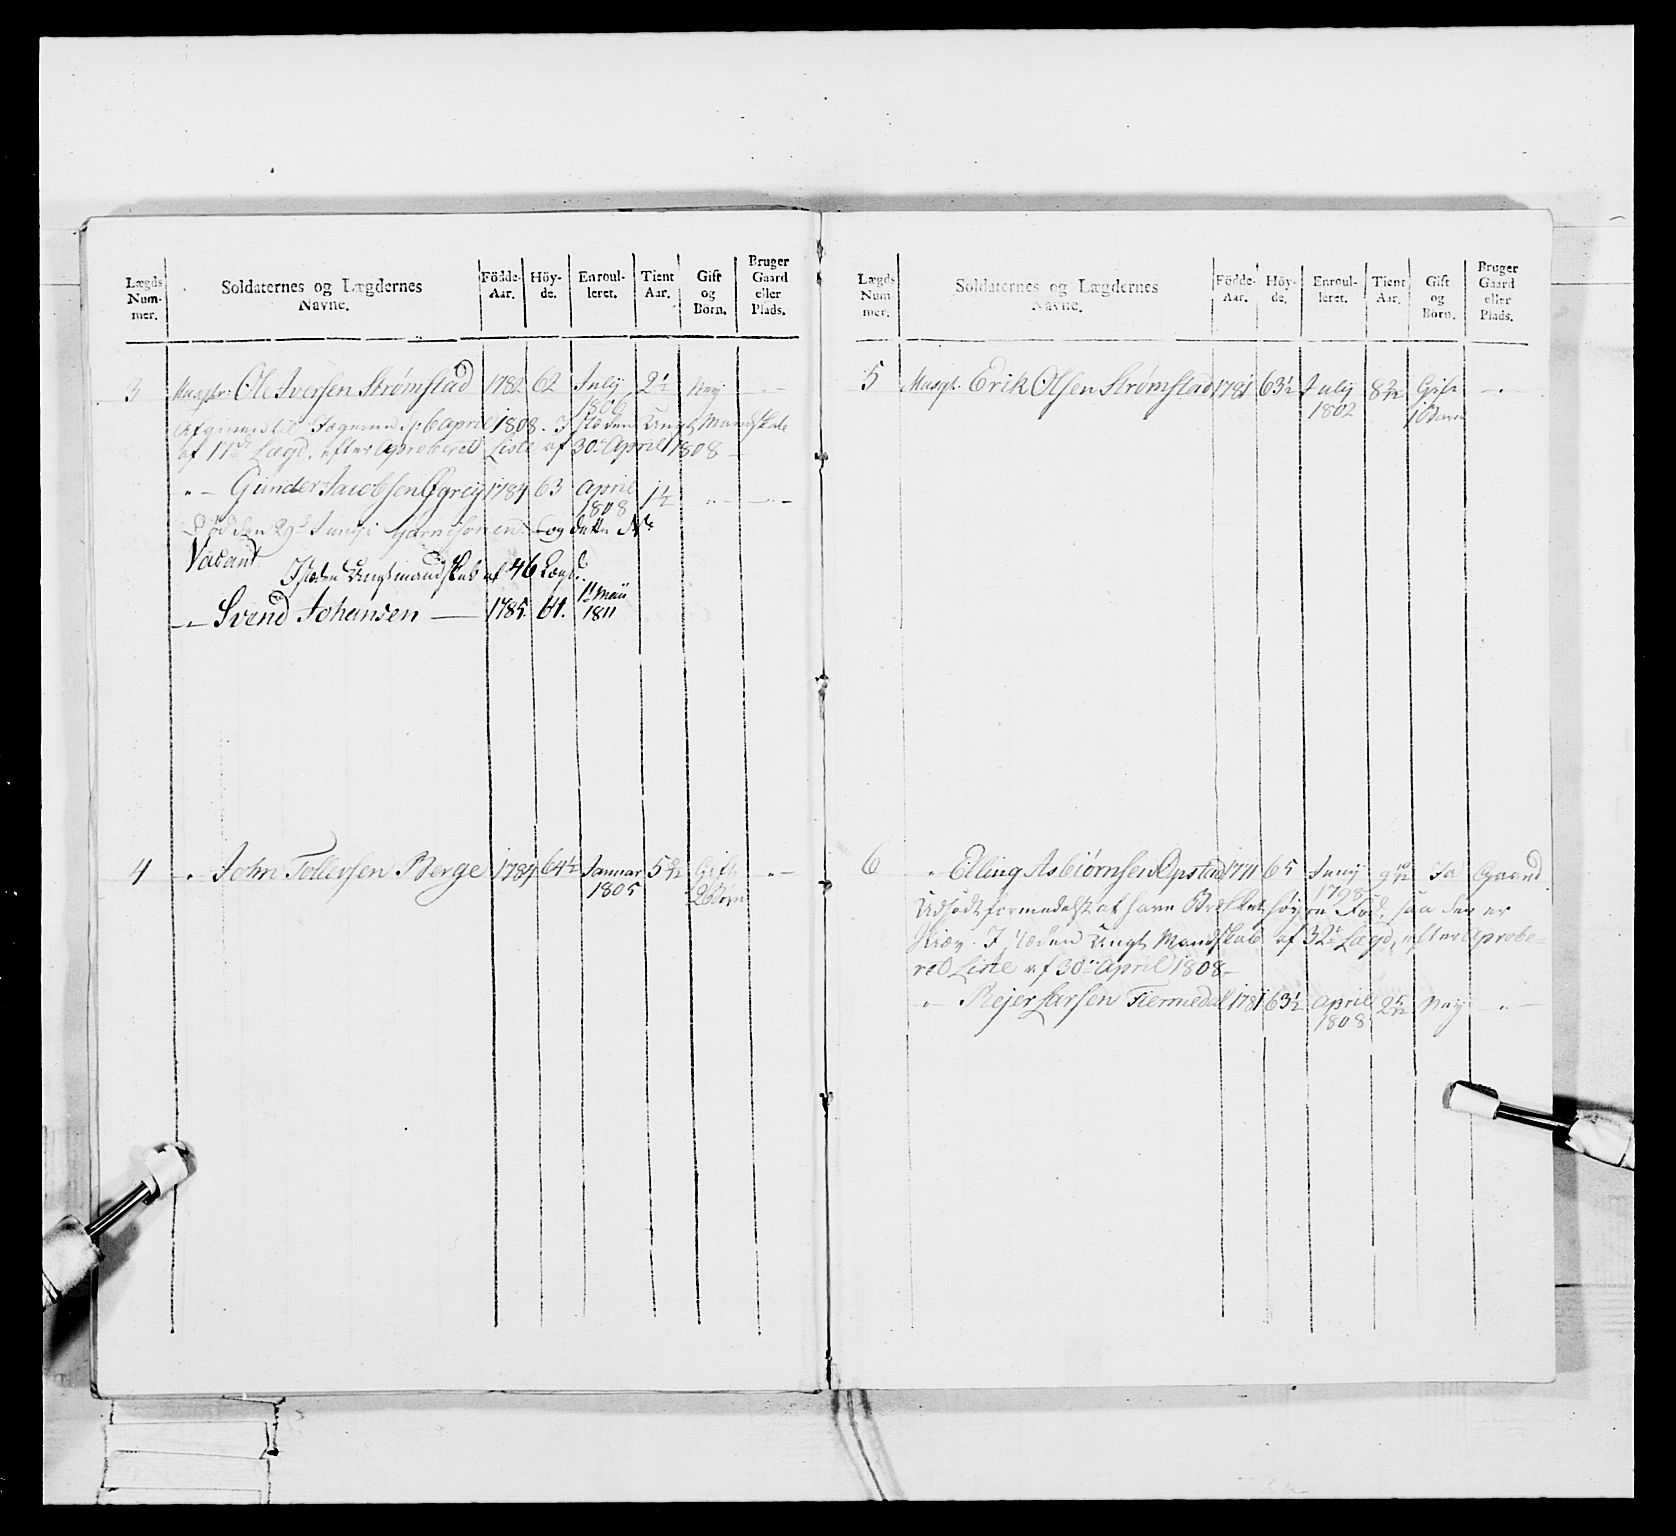 Lægds Num-mer. Soldaternes og Lægdernes Navne. Födde-Aar. Höy-de. Enroul-leret. Tient Aar. Gift og Börn. Bruger Gaard eller Plads.
3 Musqtr: Ole Iversen Strømstad 1782 62 July 1806 2½ Ney —
til Jægerne 6 April 1808. I stæden Ungt Mandskab
af 17de Lægd, efter Aproberet Liste af 30te April 1808 —
" — Gunder Jacobsen 1784 63 April 1808 " — " —
Død den 29de Juny i Garnisonen og dette No
Vacant.
I stæden Ungtmandskab af 46 Lægd.
— " — Svend Johansen — 1785. 61. 1t Maii 1811
4 — " — John Tollefsen Berge 1784 64½ Januar 1805 5 Gift 2 Børn — " —
Lægds Num-mer. Soldaternes og Lægdernes Navne. Födde-Aar. Höy-de. Enroul-leret. Tient Aar. Gift og Börn. Bruger Gaard eller Plads.
5 Musqt. Erik Olsen Strømstad 1781 63½ July 1802 8 Gift 1 Barn — " —
6 " Elling Asbiørnsen Opstad 1771 65 Juny 1798 9 Ja Gaard
Udsadt formedelst at have Brækket høyre Fod, saa den er
I stæden Ungt Mandskab af 32te Lægd, efter Aprobe=
ret Liste af 30te April 1808 —
" — Rejer Larsen Fiermedal 1781 63½ April 1808 2 Ney — " —